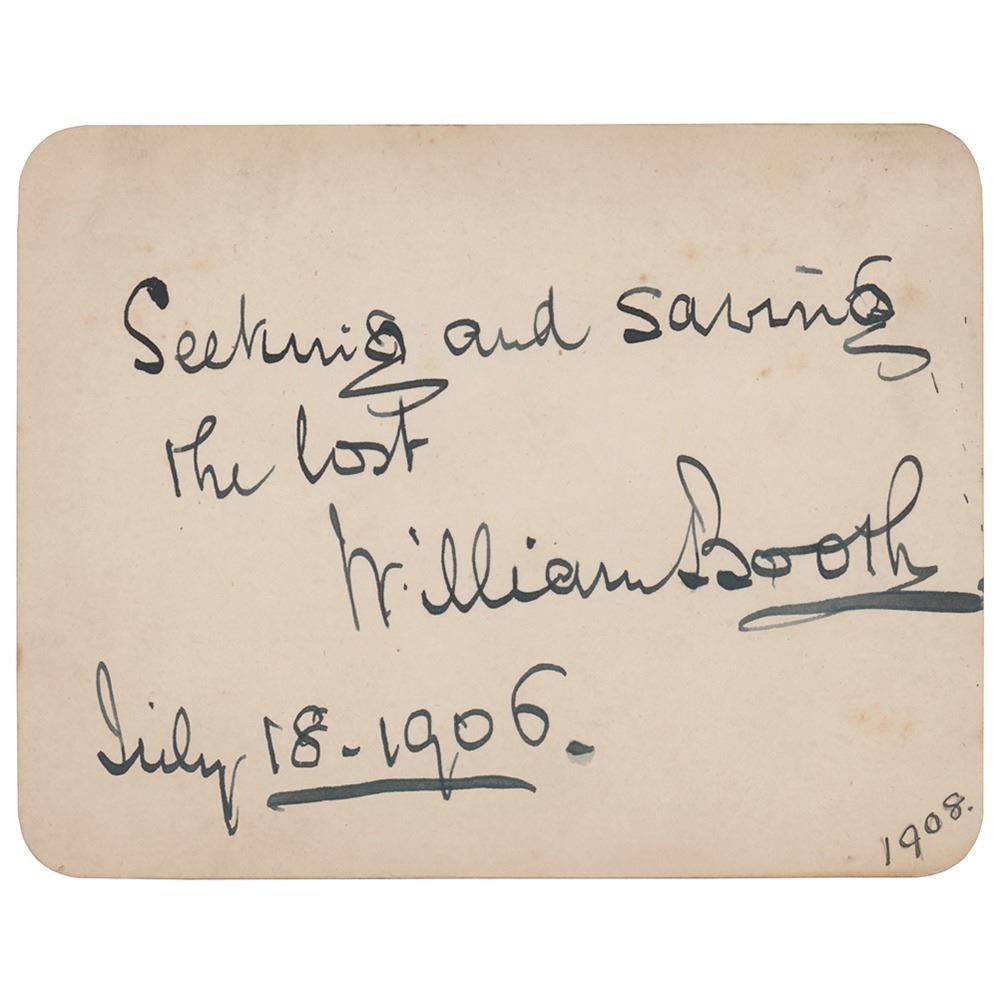 Seeking and saving
the lost
William Booth
July 18-1906.
1908.